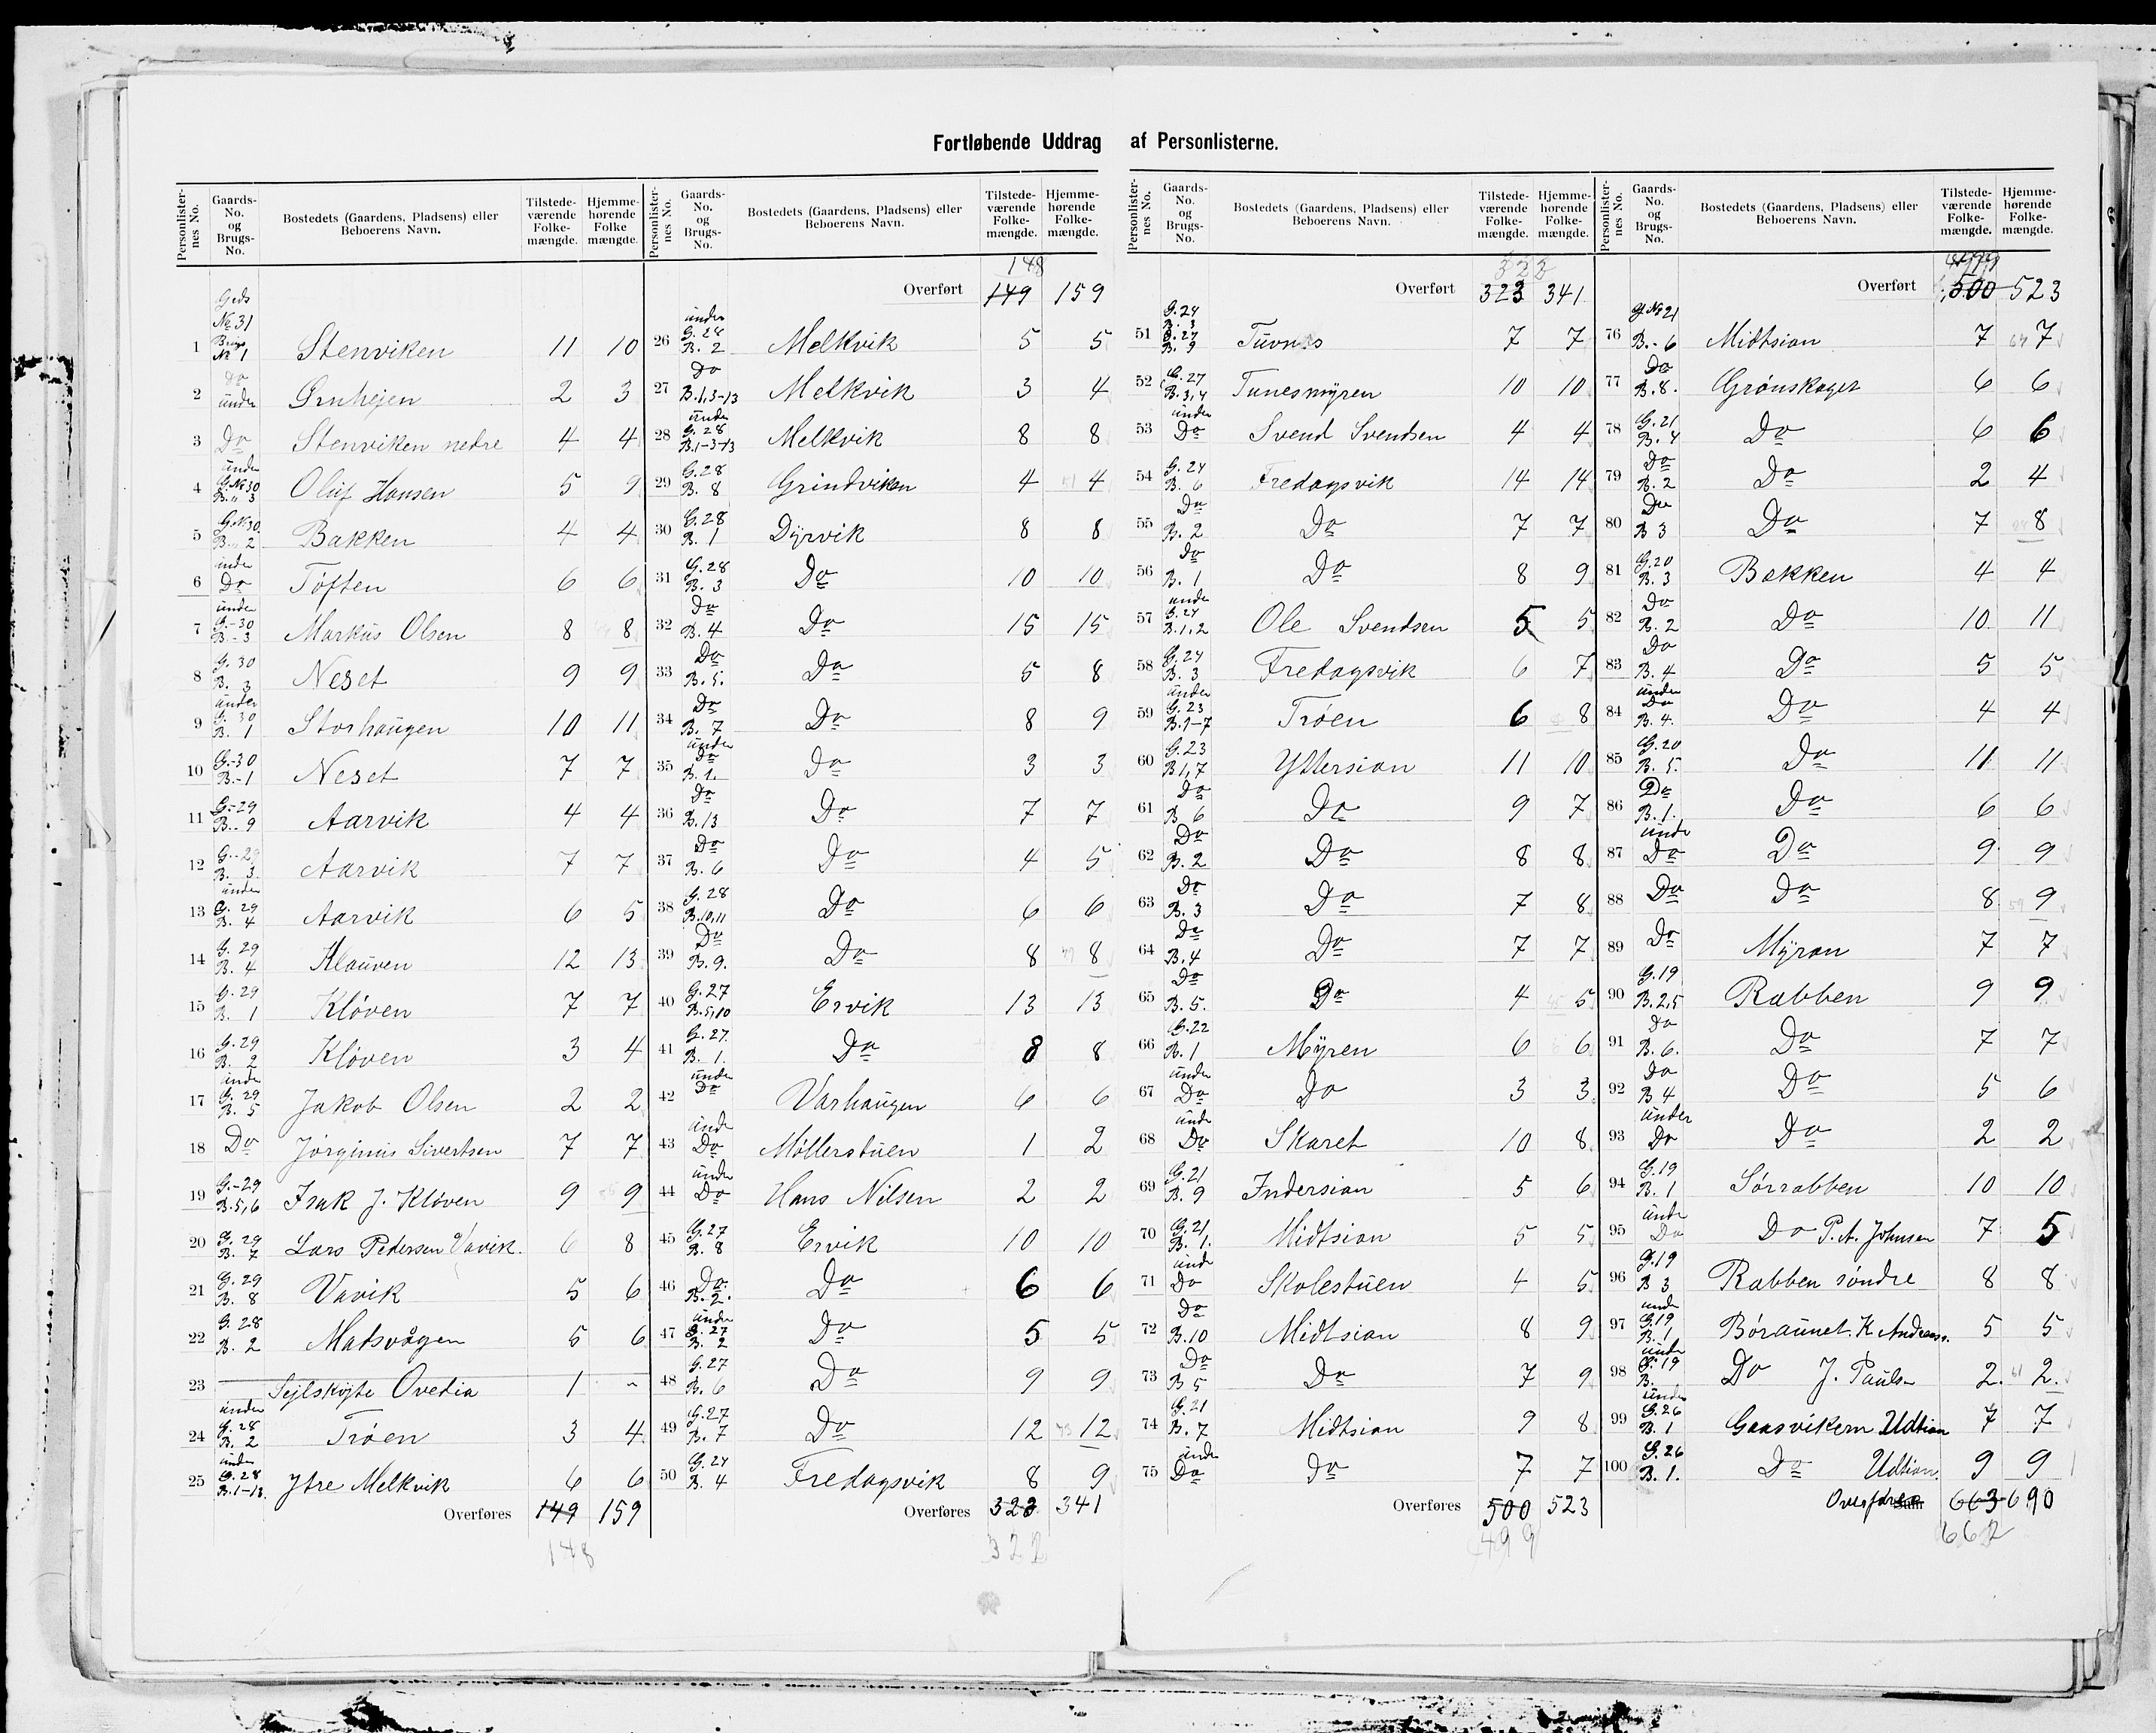 Fortløbende Uddrag af Personlisterne.
Personlister-nes No. Gaards-No. og Brugs-No. Bostedets (Gaardens, Pladsens) eller Beboerens Navn. Tilstede-værende Folke-mængde. Hjemme-hørende Folke mængde.
1 Gds No 31 Brugs No 1 Stenviken 11 10
2 Do under 2 3
3 Do Stenviken nedre 4 4
4 under G.No 30 B. " 3 Oluf Hansen 5 9
5 G.No 30. B. " 2 Bakken 4 4
6 under Do Tøften 6 6
7 under G.-30 B.-3 Markus Olsen 8 8
8 G. 30 B. 3 Neset 9 9
9 under G. 30 B. 1 Storhaugen 10 11
10 G.-30 B.-1 Neset 7 7
11 G.-29 B.-9 Aarvik 4 4
12 G.-29 B. 3. Aarvik 7 7
13 under G. 29 B. 4 Aarvik 6 5
14 G. 29 B. 4 Klauven 12 13
15 G. 29 B. 1 Kløven 7 7
16 G. 29 B. 2 Kløven 3 4
17 under G. 29 B. 5 Jakob Olsen 2 2
18 Do Jørginus Sivertsen 7 7
19 G.-29 B. 5,6 Isak J. Kløven 9 9
20 G. 29 B. 7 Lars Pedersen Vavik. 6 8
21 G. 29 B. 8 Vavik 5 6
22 G. 28 B. 2 Matsvågen 5 6
23 Sejlskøjte Ovedia 1 "
24 under G. 28 B. 2 Trøen 3 4
25 under G. 28 B. 1-13 Ytre Melkvik 6 6
Overføres 149 159
148
Personlister-nes No. Gaards-No. og Brugs-No. Bostedets (Gaardens, Pladsens) eller Beboerens Navn. Tilstede-værende Folke-mængde. Hjemme-hørende Folke-mængde.
148
Overført 149 159
26 under G. 28 B. 2 Melkvik 5 5
27 Do B. 1,3-13 Melkvik 3 4
28 under G. 28 B. 1-3-13 Melkvik 8 8
29 G. 28 B. 8 Grindviken 4 4
30 G. 28 B. 1 Dyrvik 8 8
31 G. 28 B. 3 Do 10 10
32 Do B. 4 Do 15 15
33 Do B. 5. Do 5 8
34 Do B. 7 Do 8 9
35 under Do B. 1. Do 3 3
36 Do B. 13 Do 7 7
37 Do B. 6 Do 4 5
38 G. 28 B. 10,11 Do 6 6
39 Do B. 9. Do 8 8
40 G. 27 B. 5,10 Ervik 13 13
41 G. 27. B. 1. Do 8 8
42 under Do Varhaugen 6 6
43 under Do Møllerstuen 1 2
44 under Do Hans Nilsen 2 2
45 G. 27 B. 8 Ervik 10 10
46 Do B. 2. Do 6 6
47 under G. 27 B. 2 Do 5 5
48 G. 27 B. 6 Do 9 9
49 G. 27 B. 7 Do 12 12
50 G. 24 B. 4 Fredagsvik 8 9
Overføres 323 341
322
Personlister-nes No. Gaards-No. og Brugs-No. Bostedets (Gaardens, Pladsens) eller Beboerens Navn. Tilstede-værende Folke-mængde. Hjemme-hørende Folke-mængde.
322
Overført 323 341
51 G. 24 B. 3 G. 27 B. 9 Tuvnes 7 7
52 G. 27 B. 3,4 Tunesmyren 10 10
53 under Do Svend Svendsen 4 4
54 G. 24 B. 6 Fredagsvik 14 14
55 Do B. 2 Do 7 7
56 Do B. 1 Do 8 9
57 under G. 24 B. 1,2 Ole Svendsen 5 5
58 G. 24 B. 3 Fredagsvik 6 7
59 under G. 23 B. 1-7 Trøen 6 8
60 G. 23 B 1,7 Yttersian 11 10
61 Do B 6 Do 9 7
62 Do B. 2 Do 8 8
63 Do B. 3 Do 7 8
64 Do B. 4 Do 7 7
65 Do B. 5. Do 4 5
66 G. 22 B. 1 Myren 6 6
67 under Do Do 3 3
68 under Do Skaret 10 8
69 G. 21 B. 9 Indersian 5 6
70 G. 21 B. 1. Midtsian 5 5
71 und Do Skolestuen 4 5
72 Do B. 10 Midtsian 8 9
73 Do B 5 Do 7 9
74 G. 21 B. 7 Midtsian 9 8
75 under Do Do 7 7
Overføres 500 523
499
Personlister-nes No. Gaards-No. og Brugs-No. Bostedets (Gaardens, Pladsens) eller Beboerens Navn. Tilstede-værende Folke-mængde. Hjemme-hørende Folke-mængde.
499
Overført 500 523
76 G No 21 B.-6 Midtsian 7 7
77 Do B. 8. Grønskaget 6 6
78 G. 21 B. 4 Do 6 6
79 Do B. 2 Do 2 4
80 Do B 3 Do 7 8
81 G. 20 B. 3 Bakken 4 4
82 Do B. 2 Do 10 11
83 Do B. 4 Do 5 5
84 under Do B. 4. Do 4 4
85 G. 20 B. 5. Do 11 11
86 Do B. 1. Do 6 6
87 under Do Do 9 9
88 Do Do 8 9
89 Do Myran 7 7
90 G. 19 B. 2,5 Rabben 9 9
91 Do B. 6. Do 7 7
92 Do B 4 Do 5 6
93 under Do Do 2 2
94 G. 19 B. 1 Sørrabben 10 10
95 under Do Do P. A. Johnsen 7 5
96 G. 19 B 3 Rabben søndre 8 8
97 under G. 19 B. 1 Børaunet. K 5 5
98 under G. 19 B. Do J. Pauls 2. 2.
99 under G. 26 B. 1 Udtian 7 7
100 G. 26 B. 1. Do Udtian. 9 9
Overføres 663 690
662